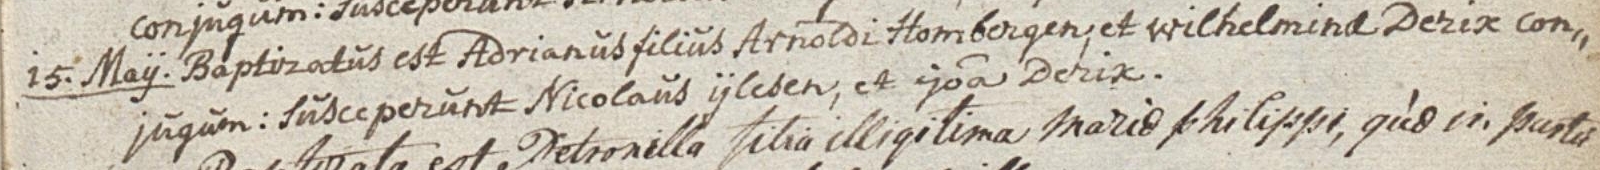 conjugum: Susceperunt
15. Maÿ. Baptizatus est Adrianus filius Arnoldi Hombergen, et Wilhelmina Derix con„
jugum: Susceperunt Nicolaus ijlesen, et joã Derix.
Baptizata est Petronilla filia illigitima Mariæ philippi, quæ in partu